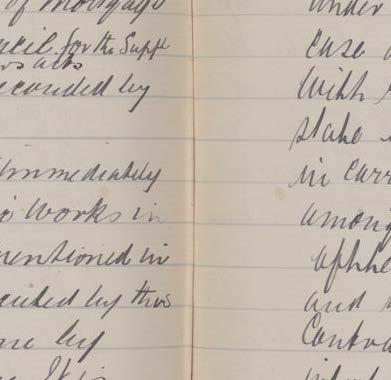 of Mortgage
ncil for the Suppl
rs acts
econded by
Immediately
works in
mentioned in
ecuted by this
me by
It is
under
case
With
stake
in carr
among
and
Contra